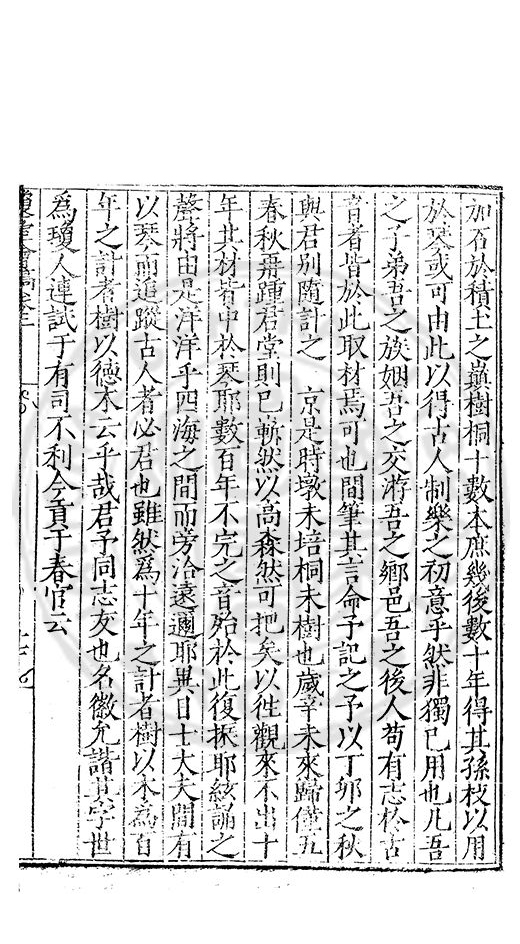 加石於積土之巔樹桐十數本庶幾後數十年得其孫枝以用
於琴或可由此以得古人制樂之初意乎然非獨已用也凡吾
之子弟吾之族姻吾之交游吾之鄉邑吾之後人苟有志於古
音者皆於此取材焉可也間筆其言命予記之予以丁邜之秋
與君別隨計之　京是時墩未培桐未樹也歲辛未來歸僅五
春秋再踵君堂則已嶄然以高森然可把矣以徃觀來不出十
年其材皆中於琴耶數百年不完之音殆於此復振耶絃誦之
聲將由是洋洋乎四海之間而旁洽遠邇耶異日士大夫間有
以琴而追蹤古人者必君也雖然為十年之計者樹以木為百
年之計者樹以德木云乎哉君予同志友也名徽允諧其字世
為瓊人連試于有司不利今貢于春官云